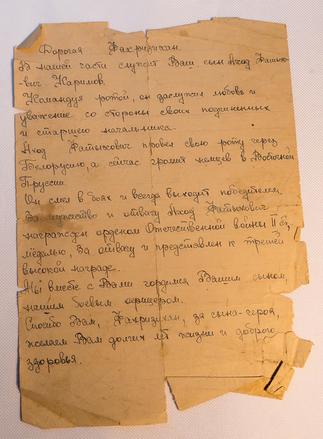 Дорогая Фахризихан.
В нашей части служит Ваш сын Аход Фатысо-
вич Каримов.
Командуя ротой, он заслужил любовь и
уважение со стороны своих подчиненных
и старшего начальника.
Аход Фатысович провел свою роту через
Белоруссию, а сейчас громит немцев в Восточной
Пруссии.
Он смел в боях и всегда выходит победителем
За мужество и отвагу Аход Фатысович
награжден орденом Отечественной войны II ст,
медалью, За отвагу и представлен к третей
высокой награде.
Мы вместе с Вами гордимся Вашим сыном,
нашим боевым офицером.
Спасибо Вам, Фахризихан, за сына-героя,
желаем Вам долгих лет жизни и доброго
здоровья.